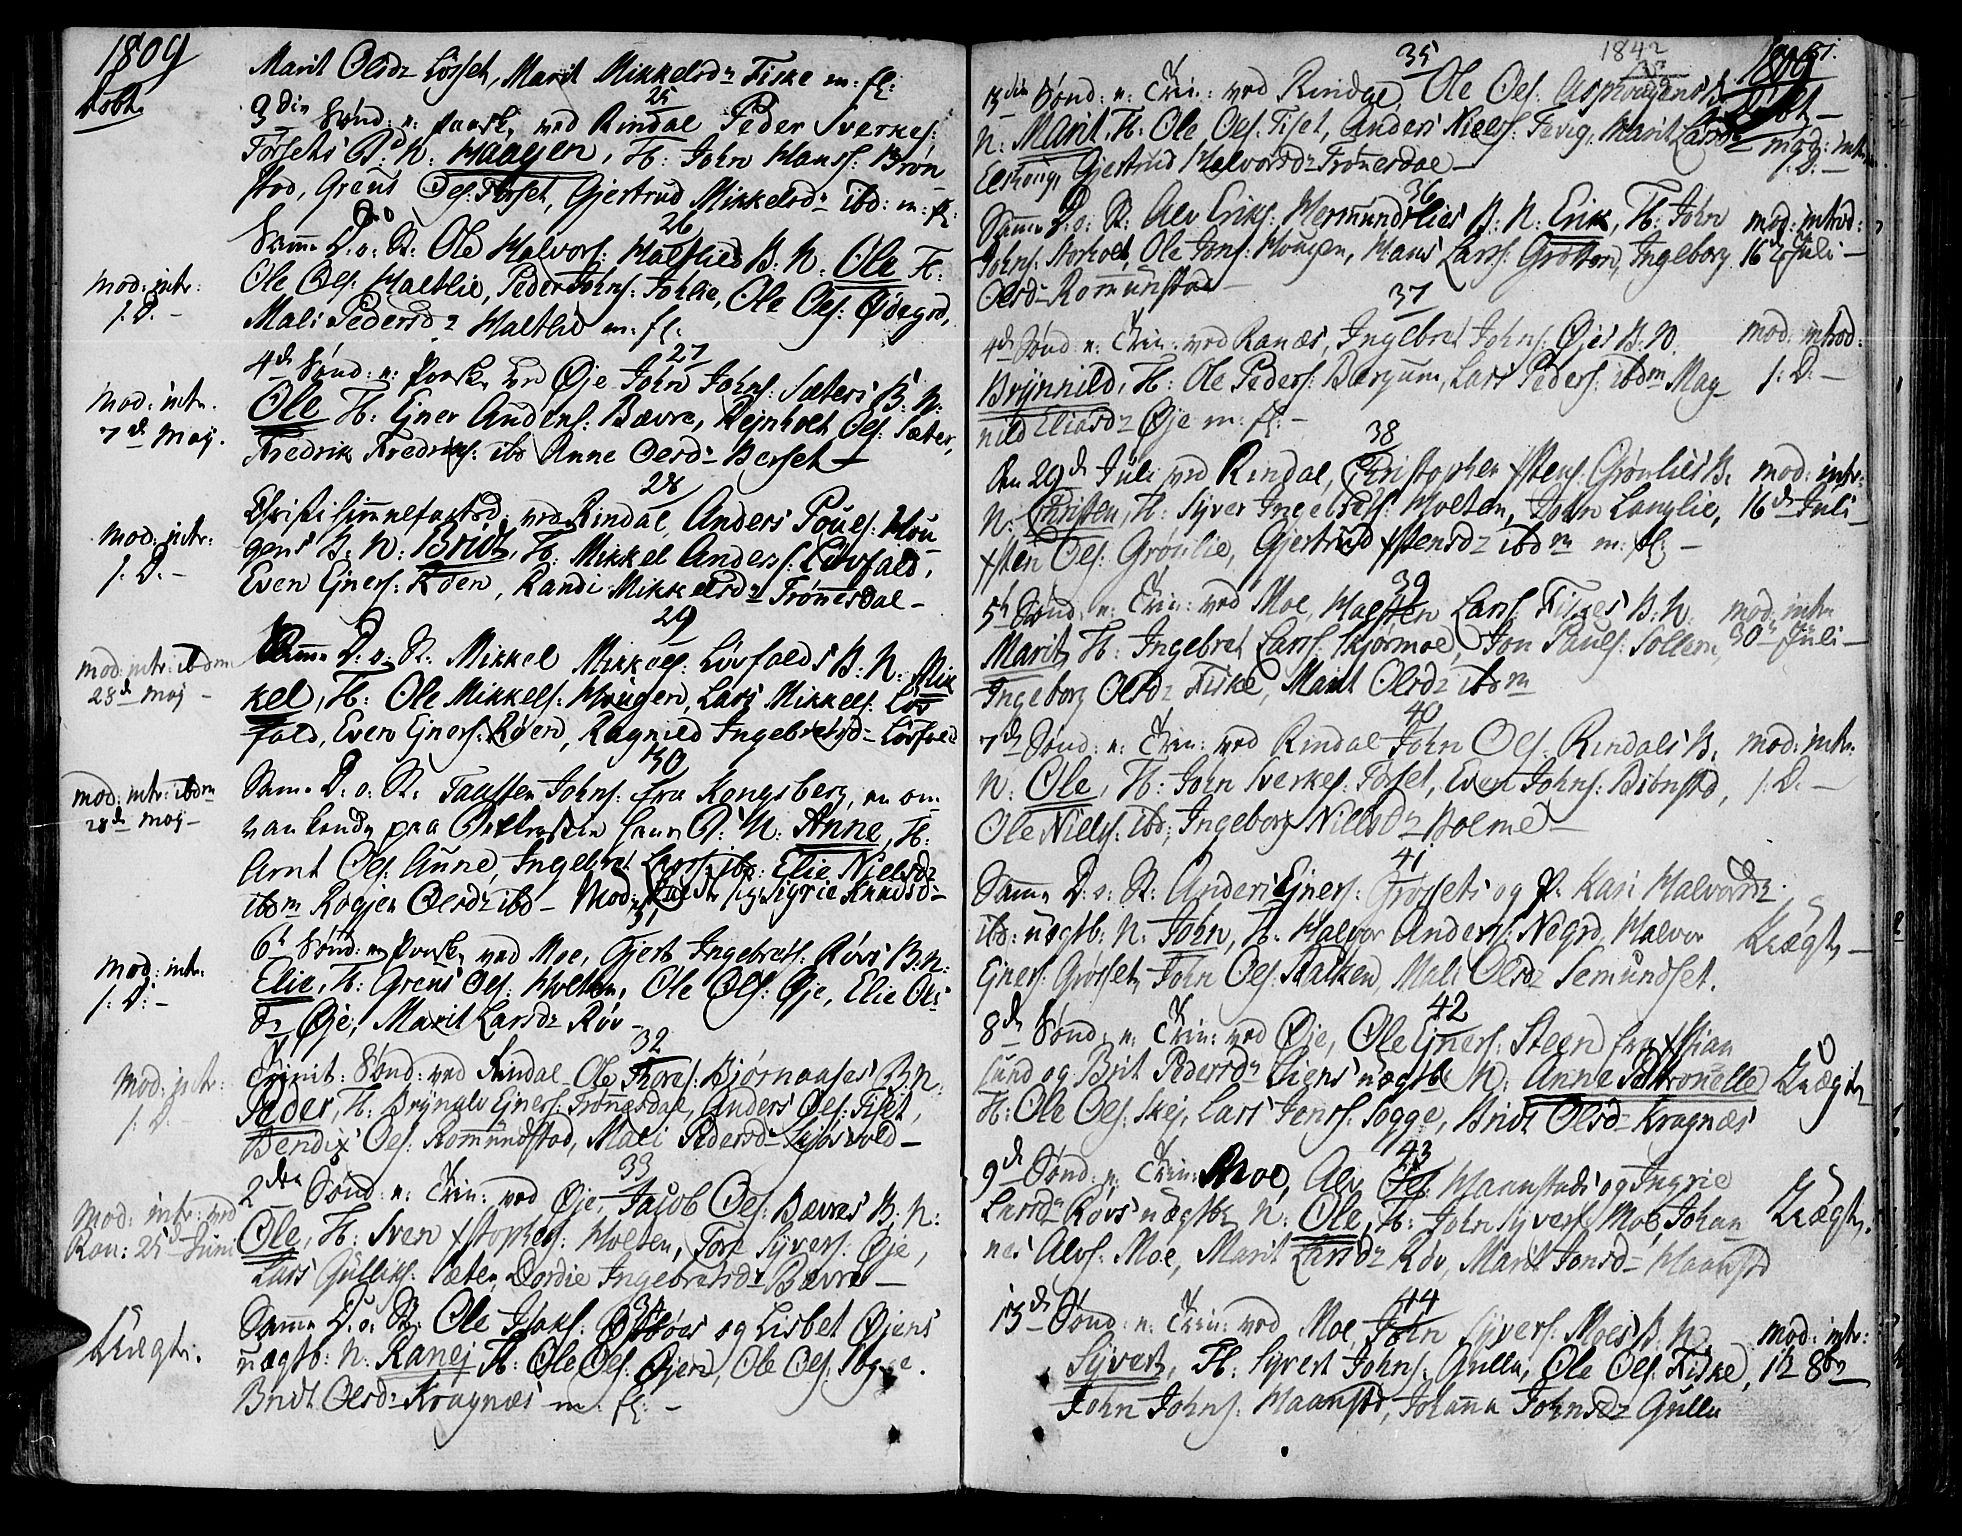 1809
Døbte
Marit Olsdr Løsset, Marit Mikkelsdr Fiske m: fl:
25
3die Sønd: n: Paaske ved Rindal Peder Sverkes:
Forsets B: N: Haagen, F: John Hanss: Brøn
stad, Grens Oles: Forset, Gjertrud Mikkelsdr ibd: m: fl:
26
Samme D. o: St: Ole Halvors: Haltlies B: N: Ole F:
Ole Oles: Haltlie, Peder Johns: Johlie, Ole Oles: Ødegrd,
Mali Pedersdr Haltlie m: fl:
Mod: intr:
s: D: –
27
4de Sønd: n: Paaske ved Øje John Johns: Sæters B: N:
Ole F: Ejner Anders: Bævre, Rejnholt Oles: Sæter,
Fredrik Fredriks: ibd Anne Olsdr Berset
Mod: intr.
7de Maj.
28
Christi himmelfartsd: ved Rindal, Anders Pouls: Hou
gens B: N: Bridt, F: Mikkel Anders: Løvfald,
Even Ejners: Røen, Randi Mikkelsdr Trønesdal –
Mod: intr:
s: D: –
29
Samme D. o: St: Mikkel Mikkels: Løvfalds B: N: Mik
kel, F: Ole Mikkels: Hougen, Lars Mikkels: Løv
fald, Even Ejners: Røen, Ragnild Ingebretsdr Løvfald
Mod: intr: ibdm
28de Maj –
30
Samme D. o: St: Taasten Johns: fra Kongsberg, en om
van B: N: Anne, F:
Arnt Oles: Aune, Ingebret Larss: ibd: Elie Nielsdr
ibdm Rogjen Olsdr ibd – Mod: Sigrie Knudsdr
Mod: intr: ibdm
28de Maj –
6te Sønd: n: Paaske ved Moe, Gjert Ingebrets: Røvs B: N:
Elie, F: Grens Oles: Holten, Ole Oles: Øje, Elie Ols
dr Øje, Marit Larsdr Røv –
Mod: intr:
s: D: –
32
Trinit: Sønd: ved Rindal Ole Tores: Bjørnaases B: N:
Peder, F: Brynald Ejners: Trønesdal, Anders Oles: Fiset,
Bendix Oles: Romundstad, Mali Pedersdr Skjølsvold –
Mod: intr:
s: D. –
33
2den Sønd: n: Trin: ved Øje, Jacob Oles: Bævres B: N:
Ole, F: Sven Xstophers: Holten, Tore Syvers: Øje,
Lars Gulliks: Sæter, Dordie Ingebretsdr Bævre –
Mod: intr: ved
Ran: 25 Juni
34
Samme D. o: St: Ole Isaks: og Lisbet Øjens
uægtb: N: Ranej F: Ole Oles: Øjen, Ole Oles: Sogge.
Bridt Olsdr Kragnæs m: fl: –
Uægte.
1842
1809
35
Sønd: n: Trin: ved Rindal, Ole Oles: Asphougens B:
N: Marit F: Ole Oles: Fiset, Anders Niels: Tevig, Marit Larsdr
Elshoug, Gjertrud Halvorsdr Trønesdal –
mod: intr:
s: D: –
36
Samme D. o: St: Alv Eriks: Hermundslies B: N: Erik, F: John
Johns: Storholt, Ole Jons: Hougen, Hans Larss: Grotten, Ingeborg
Olsdr Romunstad –
mod: introd:
16de Juli –
37
4de Sønd: n: Trin: ved Ranæs, Ingebret Johns: Øjes B: N:
Brynnild, F: Ole Peders: Bergum, Lars Peders: ibdm Mag
nild Eliasdr Øje m: fl: –
mod: introd:
s: D: –
38
Den 29de Juli ved Rindal, Christopher Xstens: Grønlies B:
N: Christen, F: Syver Ingebrets: Holten, John Langlie,
Xsten Oles: Grønlie, Gjertrud Xstensdr ibdm m: fl: –
mod: intr:
16de Juli –
39
5te Sønd: n: Trin: ved Moe, Halsten Larss: Fiskes B: N:
Marit, F: Ingebret Larss: Skjermoe, Jon Pauls: Sollem,
Ingeborg Olsdr Fiske, Marit Olsdr ibdm
mod: intr:
30te Juli –
40
7de Sønd: n: Trin: ved Rindal John Oles: Rindals B:
N: Ole, F: John Sverkes: Forset, Even Johns: Bjønstd,
Ole Niels: ibd; Ingeborg Nielsdr Holme –
mod: intr:
s: D: –
41
Samme D. o: St: Anders Ejners: Grøssets og P. Kari Halvorsdr
ibd: uægtb: N: John, F: Halvor Anders: Negrd, Halvor
Ejners: Grøsset, John Oles: Stalken, Mali Olsdr Semundset.
Uægte –
42
8de Sønd: n: Trin: ved Øje, Ole Ejners: Steen fra Xstian
sund og Brit Pedersdr Liens uægtbe N: Anne Peltronelle
F: Ole Oles: Skej, Lars Jenss: Sogge, Bridt Olsdr Kragnæs
Uægte
43
9de Sønd: n: Trin: Moe, Alv Oles: Haanstads og Ingrie
Larsdr Røvs uægtbe N: Ole, F: John Syvers: Moe, Johan
nes Alvs: Moe, Marit Larsdr Røv, Marit Jonsdr Haanstd
Uægte.
44
13de Sønd: n: Trin: ved Moe, John Syvers: Moes B: N:
Syvert, F: Syvert Johns: Gulla, Ole Oles: Fiske,
John Johns: Haanstd, Johanna Johnsdr Gulla
mod: intr:
12 8br